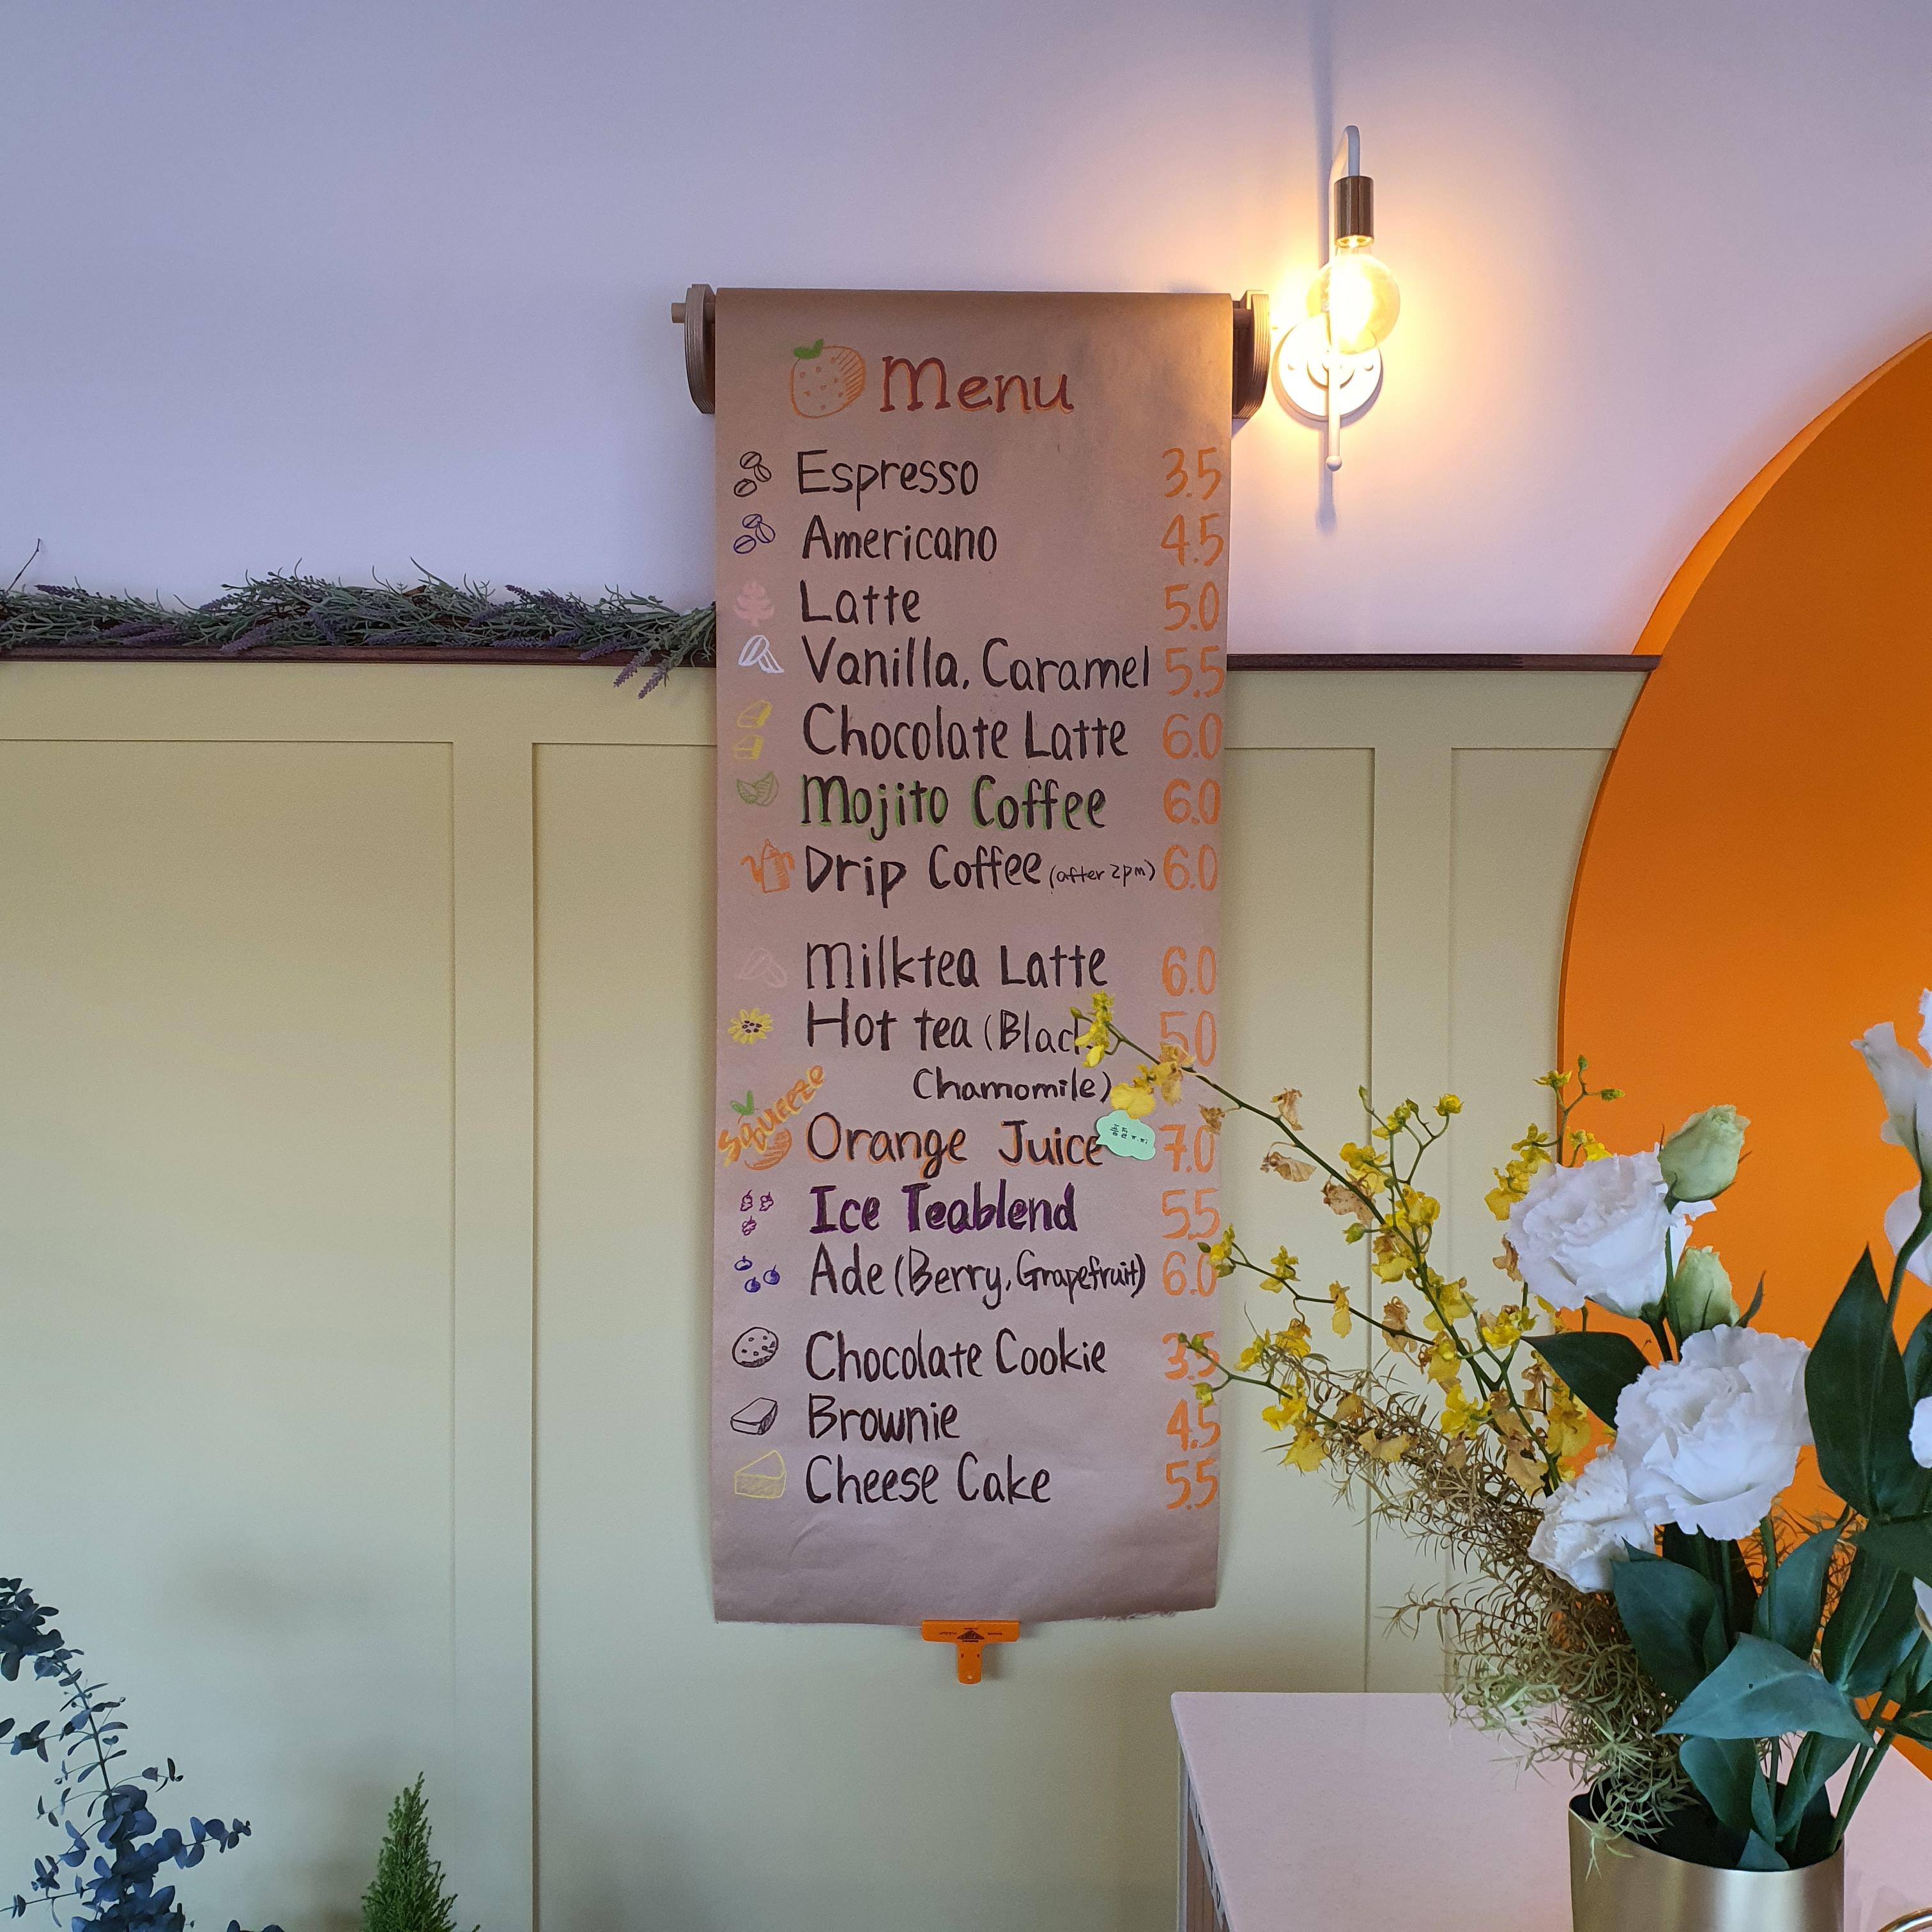 Menu
Espresso 3.5
Americano 4.5
Latte 5.0
Vanilla, Caramel 5.5
Chocolate Latte 6.0
Mojito Coffee 6.0
Drip Coffee (after 2pm) 6.0
Milktea Latte 6.0
Hot tea (Black 5.0
Chamomile)
Squeeze
Orange Juice 7.0
Ice Teablend 5.5
Ade (Berry, Grapefruit) 6.0
Chocolate Cookie 3.5
Brownie 4.5
Cheese Cake 5.5